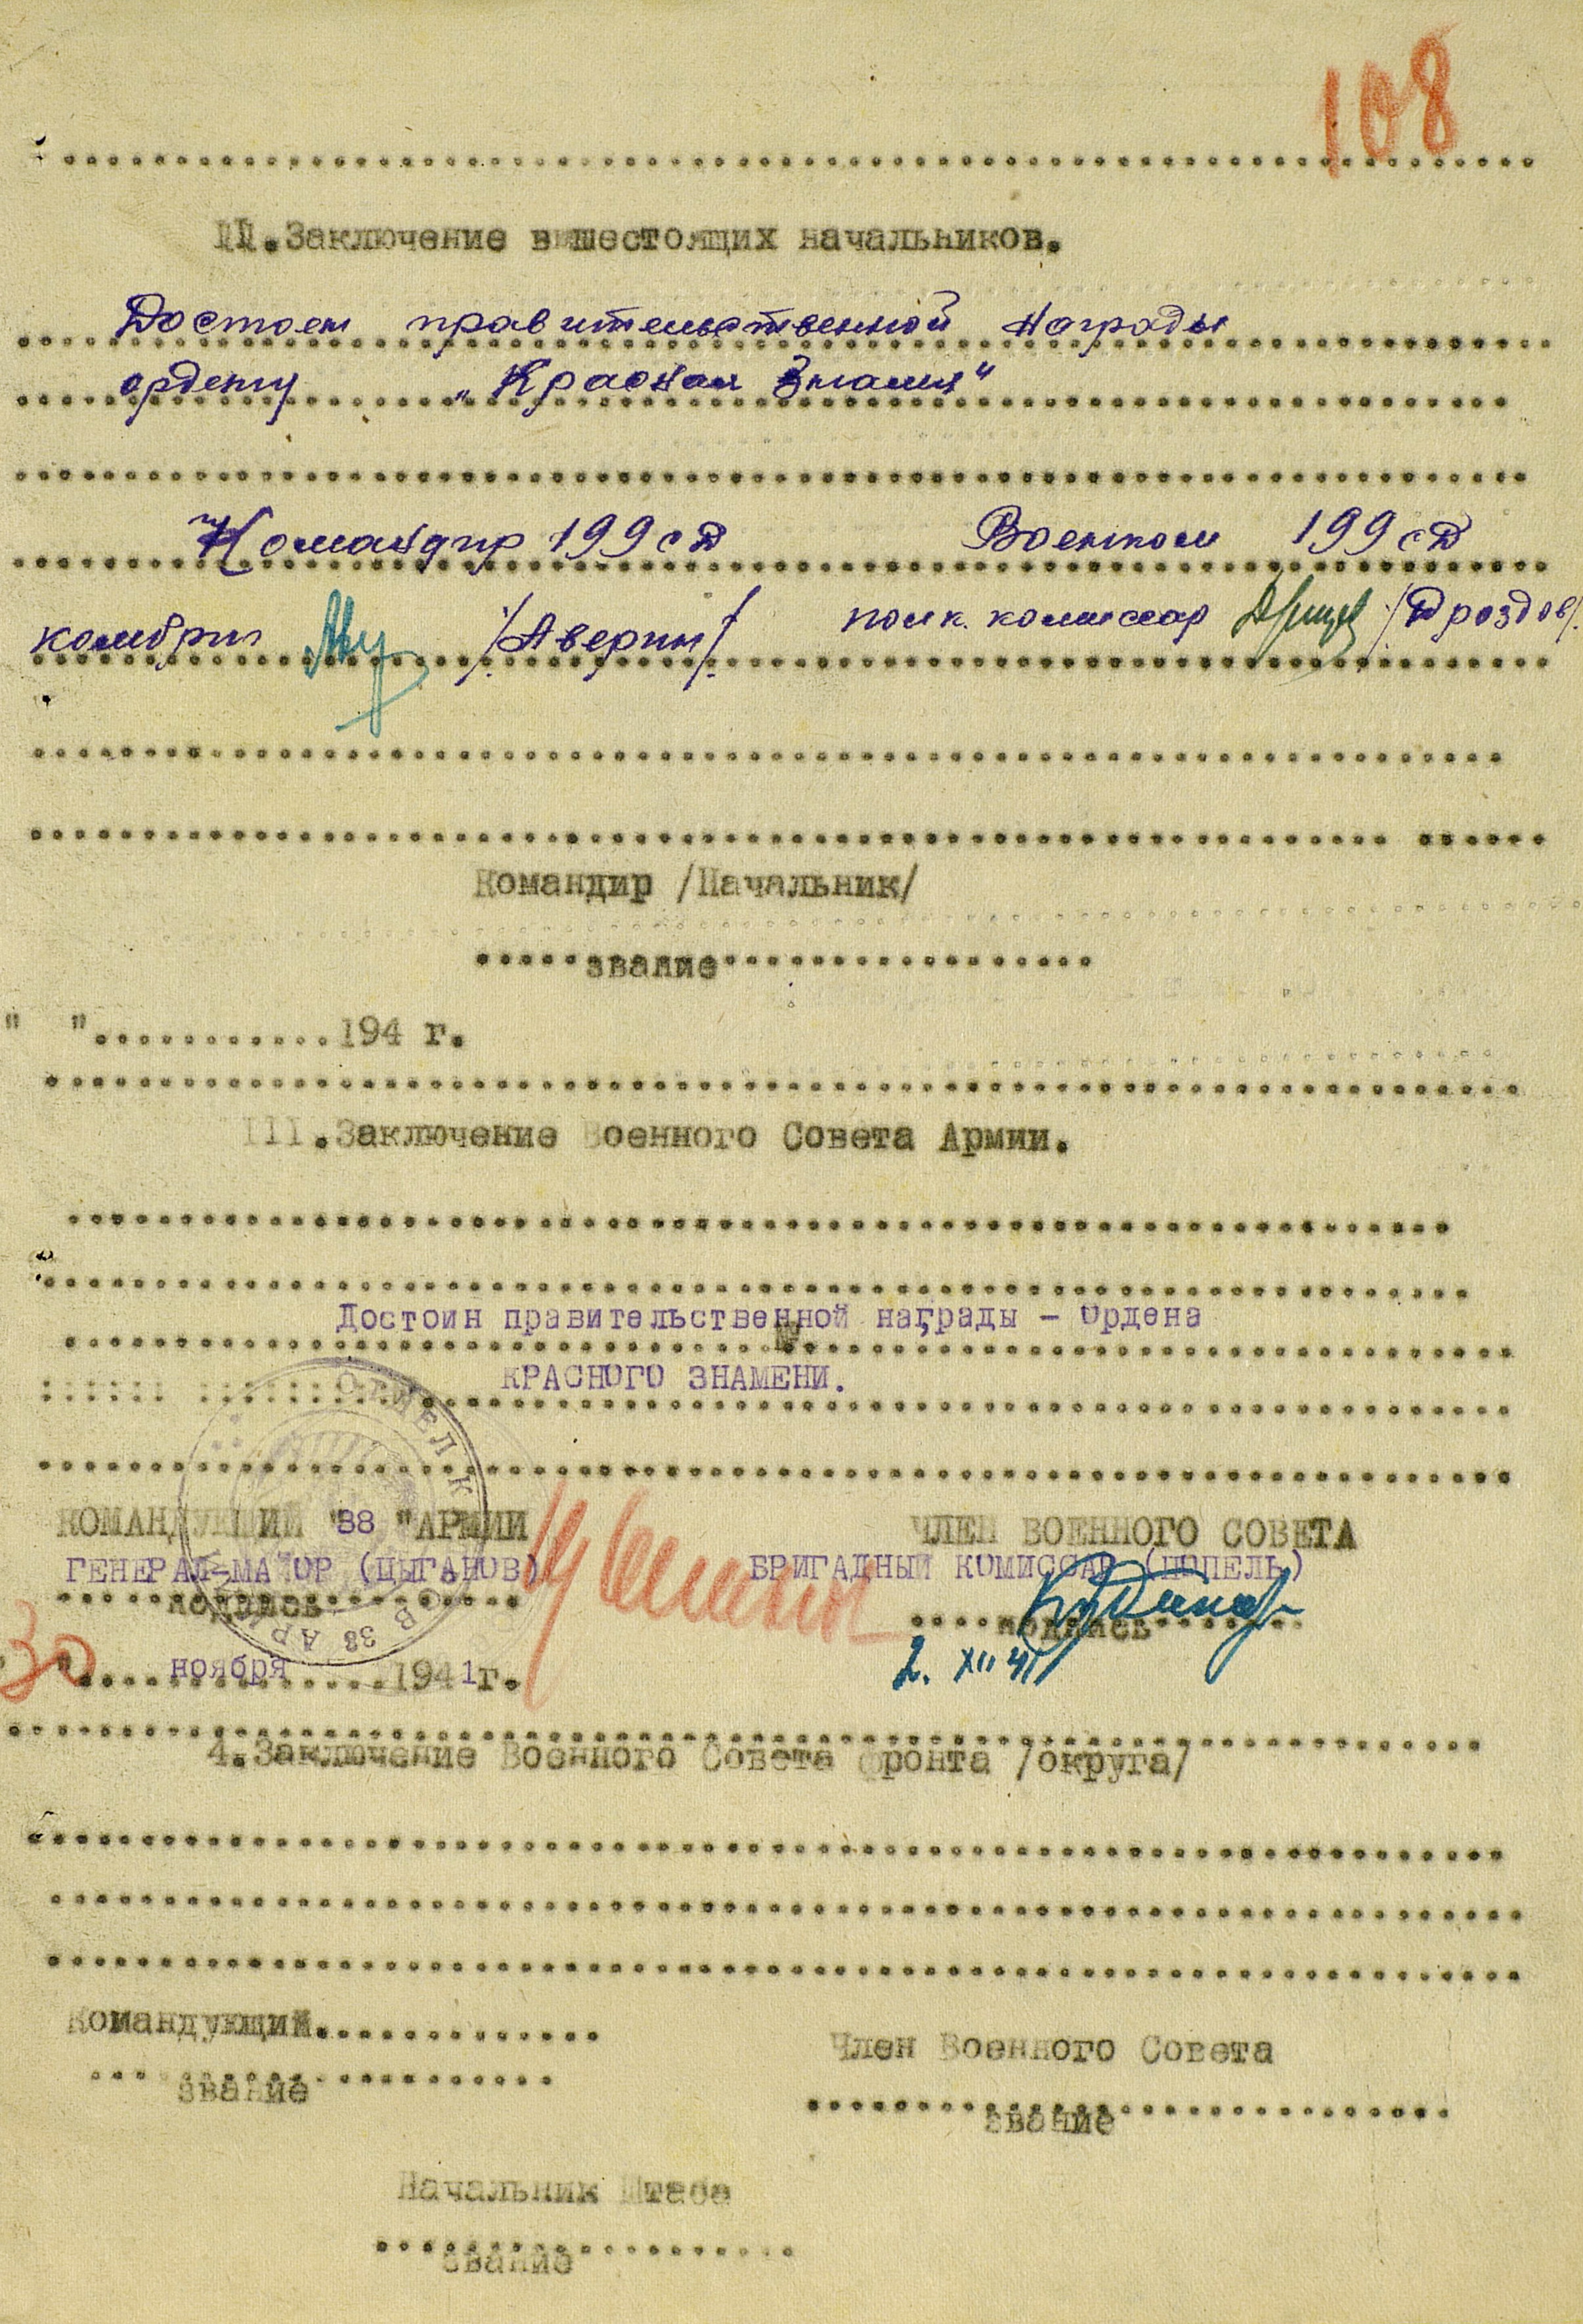 108
II.Заключение вышестоящих начальников.
Достоен правительственной награды
ордену „Красная Знамя“
Командир 199 сд Военком 199 сд
комбриг /Аверин/ полк. комиссар /Дроздов/
Командир /Начальник/
звание
" "............194 г.
III.Заключение Военного Совета Армии.
Достоин правительственной награды - ордена
КРАСНОГО ЗНАМЕНИ.
КОМАНДУЮЩИЙ "38 "АРМИИ ЧЛЕН ВОЕННОГО СОВЕТА
ГЕНЕРАЛ-МАЙОР (ЦЫГАНОВ) БРИГАДНЫЙ КОМИССАР (ПОПЕЛЬ)
подпись подпись
"30 " ноября 1941г. 2. XII 41
4.Заключение Военного Совета фронта /округа/
Командующий..............
звание
Член Военного Совета
звание
Начальник Штаба
звание